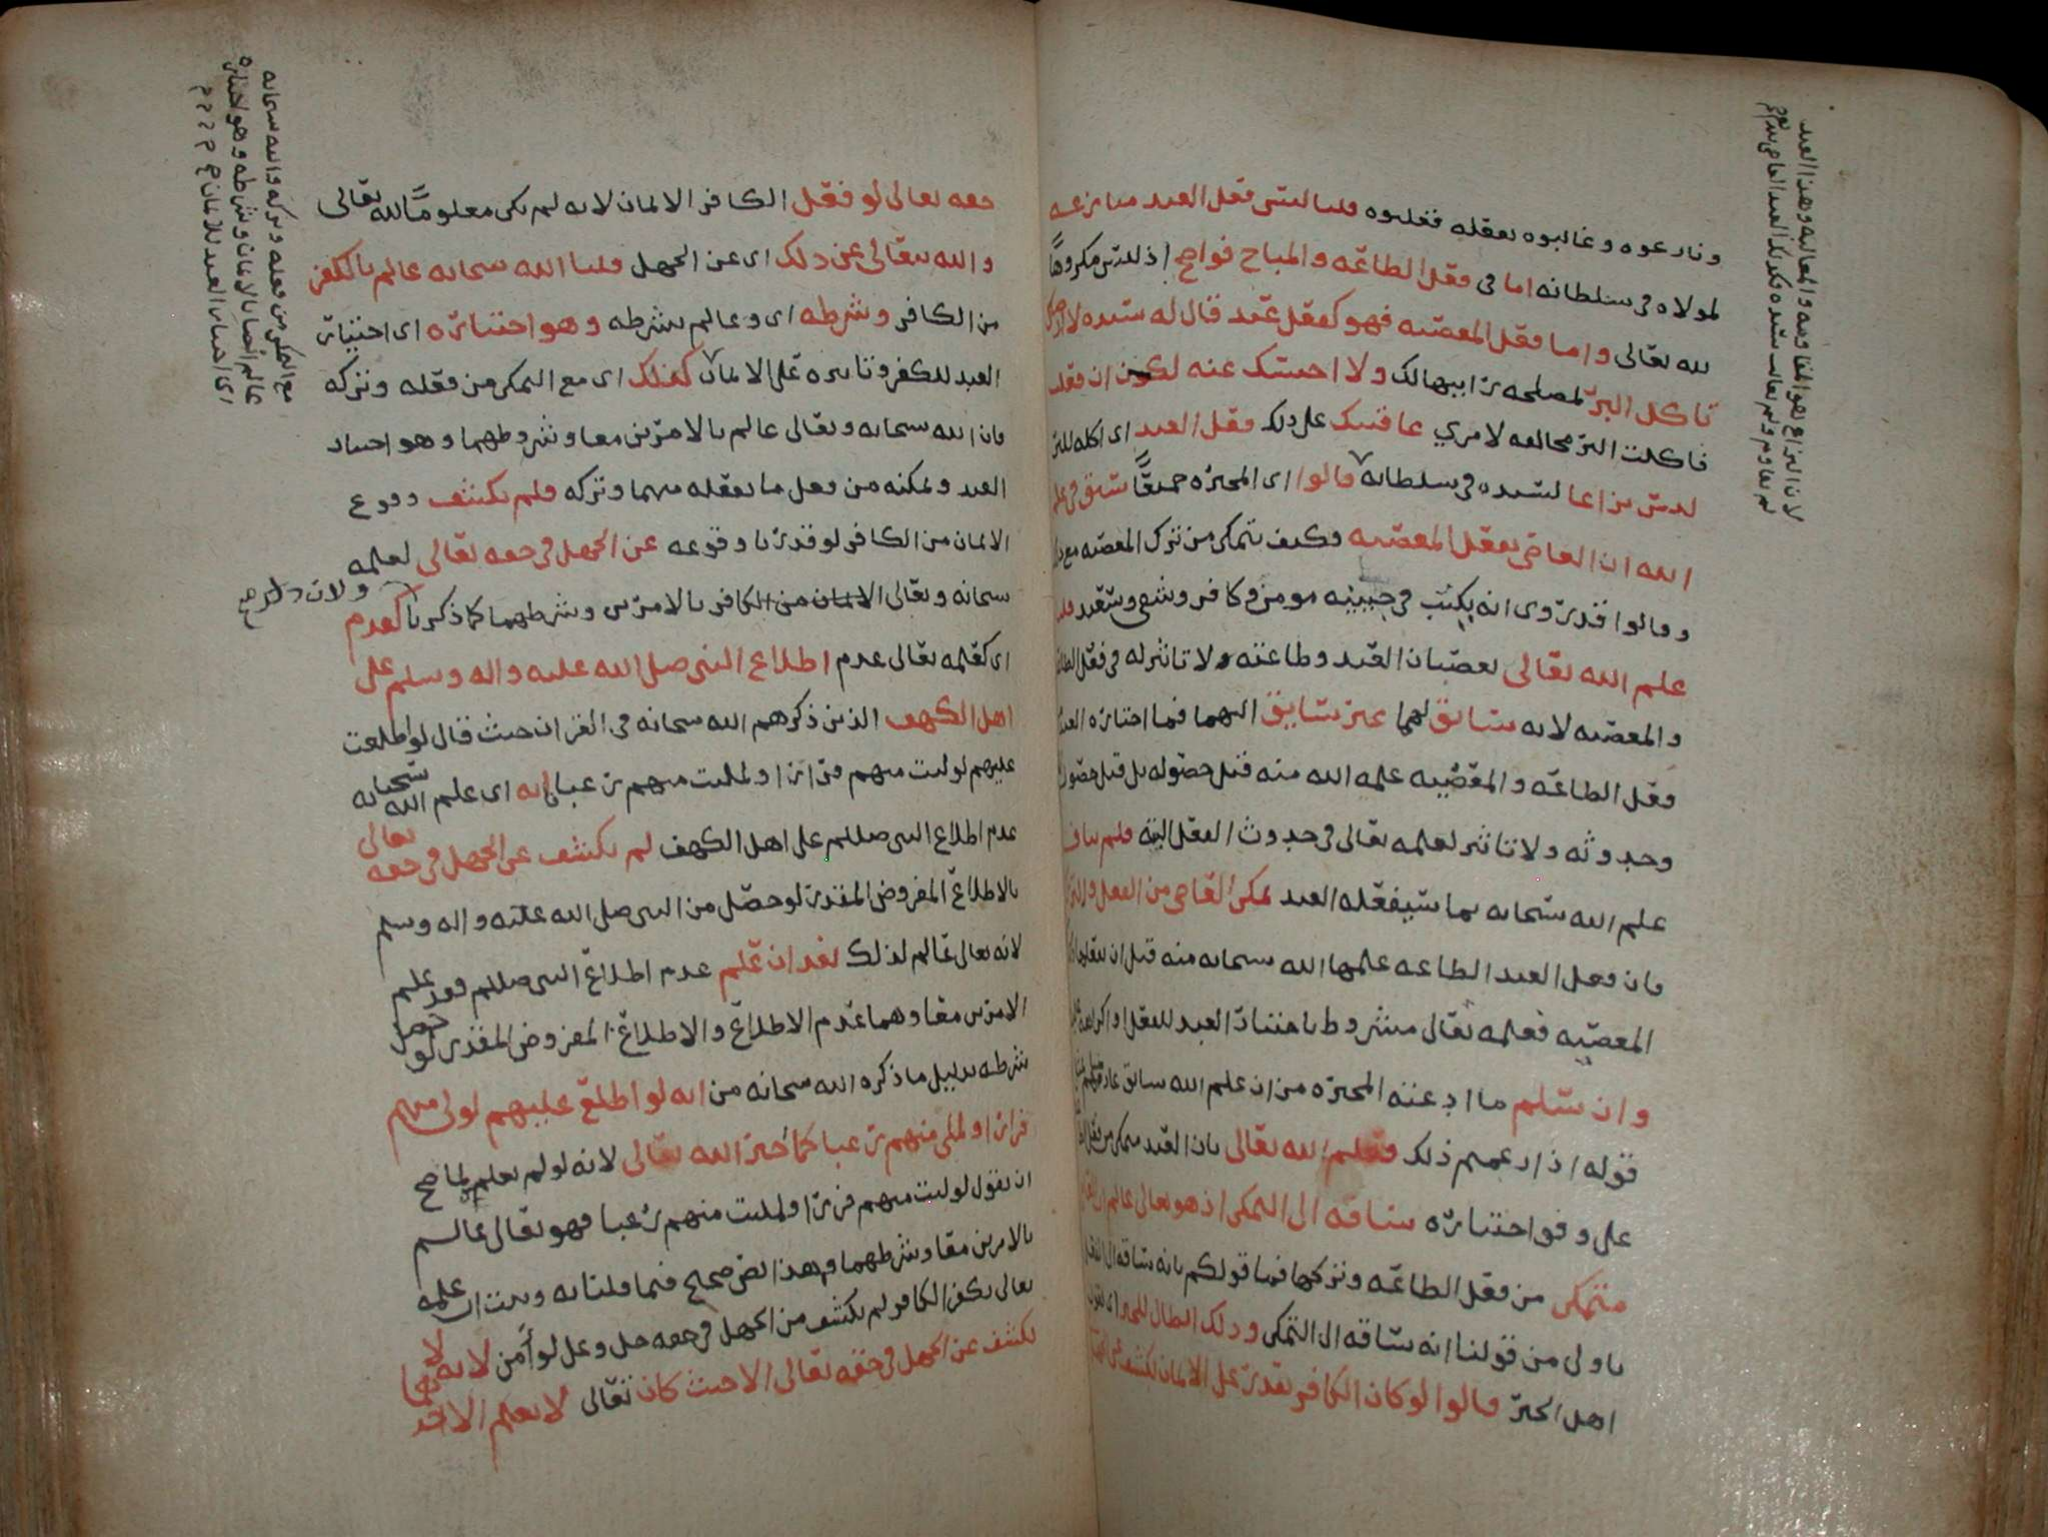 ونازعوه وغالبوه بفعله فغلبوه قلنا ليس فعل العبد منازعة
لمولاه في سلطانه اما في فعل الطاعة والمباح فواضح اذ ليس مكروهاً
لله تعالى واما فعل المعصيه فهو كفعل عبد قال له سيده لا ارضى
تأكل البر لمصلحه رآيتها لك ولا احبسك عنه لكن ان فعلت
فاكلت البر مخالفه لامري عاقبتك على ذلك ففعل العبد اى اكله للبر
ليس نزاعا لسيده في سلطانه قالوا اى المجبره جميعاً سبق في علم
الله ان العاصي يفعل المعصيه فكيف يتمكن من ترك المعصيه مع
وقالوا قد روى انه يكتب في جبينه مومن وكافر وشقي وسعيد قلنا
علم الله تعالى بعصيان العبد وطاعته لا تاثير له في فعل الطاعة
والمعصيه لانه سابق لهما غير سايق اليهما فما اختاره العبد
فعل الطاعه والمعصيه علمه الله منه قبل حصوله بل قبل حصول
وحدوثه ولا تاثير لعلمه تعالى في حدوث الفعل البتة فلم يناف
علم الله سبحانه بما سيفعله العبد تمكن العاصي من الفعل والترك
فان فعل العبد الطاعه علمها الله سبحانه منه قبل ان يفعلها
المعصيه فعلمه تعالى مشروط باختيار العبد للفعل او
وان سلم ما ادعته المجبره من ان علم الله سابق
قوله اذ ازعمهم ذلك فعلم الله تعالى بان العبد متمكن من فعل
على وفق اختياره ساقه الى التمكن اذ هو تعالى عالم ان
متمكن من فعل الطاعه وتركها فما قولكم بانه ساقه الى
باولى من قولنا انه ساقه الى التمكن وذلك ابطال للجبر
اهل الجبر قالوا لو كان الكافر يقدر على الايمان لكشف عن الجهل
لان النزاع هو المقاومه والمغالبه وهذا العبد
لم يقاوم ولم يغالب سيده فكذلك العبد العاصي
حقه تعالى لو فعل الكافر الايمان لانه لم يكن معلوماً لله تعالى
والله يتعالى عن ذلك اى عن الجهل قلنا الله سبحانه عالم بالكفر
من الكافر وشرطه اى وعالم بشرطه وهو اختياره اى اختيار
العبد للكفر وتاثيره على الايمان كذلك اى مع التمكن من فعله وتركه
فان الله سبحانه وتعالى عالم بالامرين معا وشروطهما وهو اختيار
العبد وتمكنه من فعل ما يفعله منهما وتركه فلم يكشف وقوع
الايمان من الكافر لو قدرنا وقوعه عن الجهل في حقه تعالى لعلمه
سبحانه وتعالى الايمان من الكافر بالامرين وشرطهما كما ذكرنا ولان ذلك كعدم
اى كعلمه تعالى عدم اطلاع النبي صلى الله عليه واله وسلم على
اهل الكهف الذين ذكرهم الله سبحانه في القران حيث قال لو اطلعت
عليهم لوليت منهم فرارا ولملئت منهم رعبا فانه اى علم الله سبحانه
عدم اطلاع النبي صللم على اهل الكهف لم يكشف عن الجهل في حقه تعالى
بالاطلاع المفروض المقدر لو حصل من النبي صلى الله عليه واله وسلم
لانه تعالى عالم لذلك بعد ان علم عدم اطلاع النبي صللم فقد علم
الامرين معا وهما عدم الاطلاع والاطلاع المفروض المقدر لو حصل
شرطه بدليل ما ذكره الله سبحانه من انه لو اطلع عليهم لولى منهم
فرارا ولملئ منهم رعبا كما اخبر الله تعالى لانه لو لم يعلم لما صح
ان يقول لوليت منهم فرارا ولملئت منهم رعبا فهو تعالى عالم
بالامرين معا وشرطهما وهذا نص صحيح فيما قلنا به وثبت ان علمه
تعالى بكفر الكافر لم يكشف من الجهل في حقه جل وعلى لو أمن لانه لا
يكشف عن الجهل في حقه تعالى الا حيث كان تعالى لا يعلم الا احدهما
مع التمكن من فعله وتركه والله سبحانه
عالم ايضا بالايمان وشرطه وهو اختياره
اى اختيار العبد للايمان